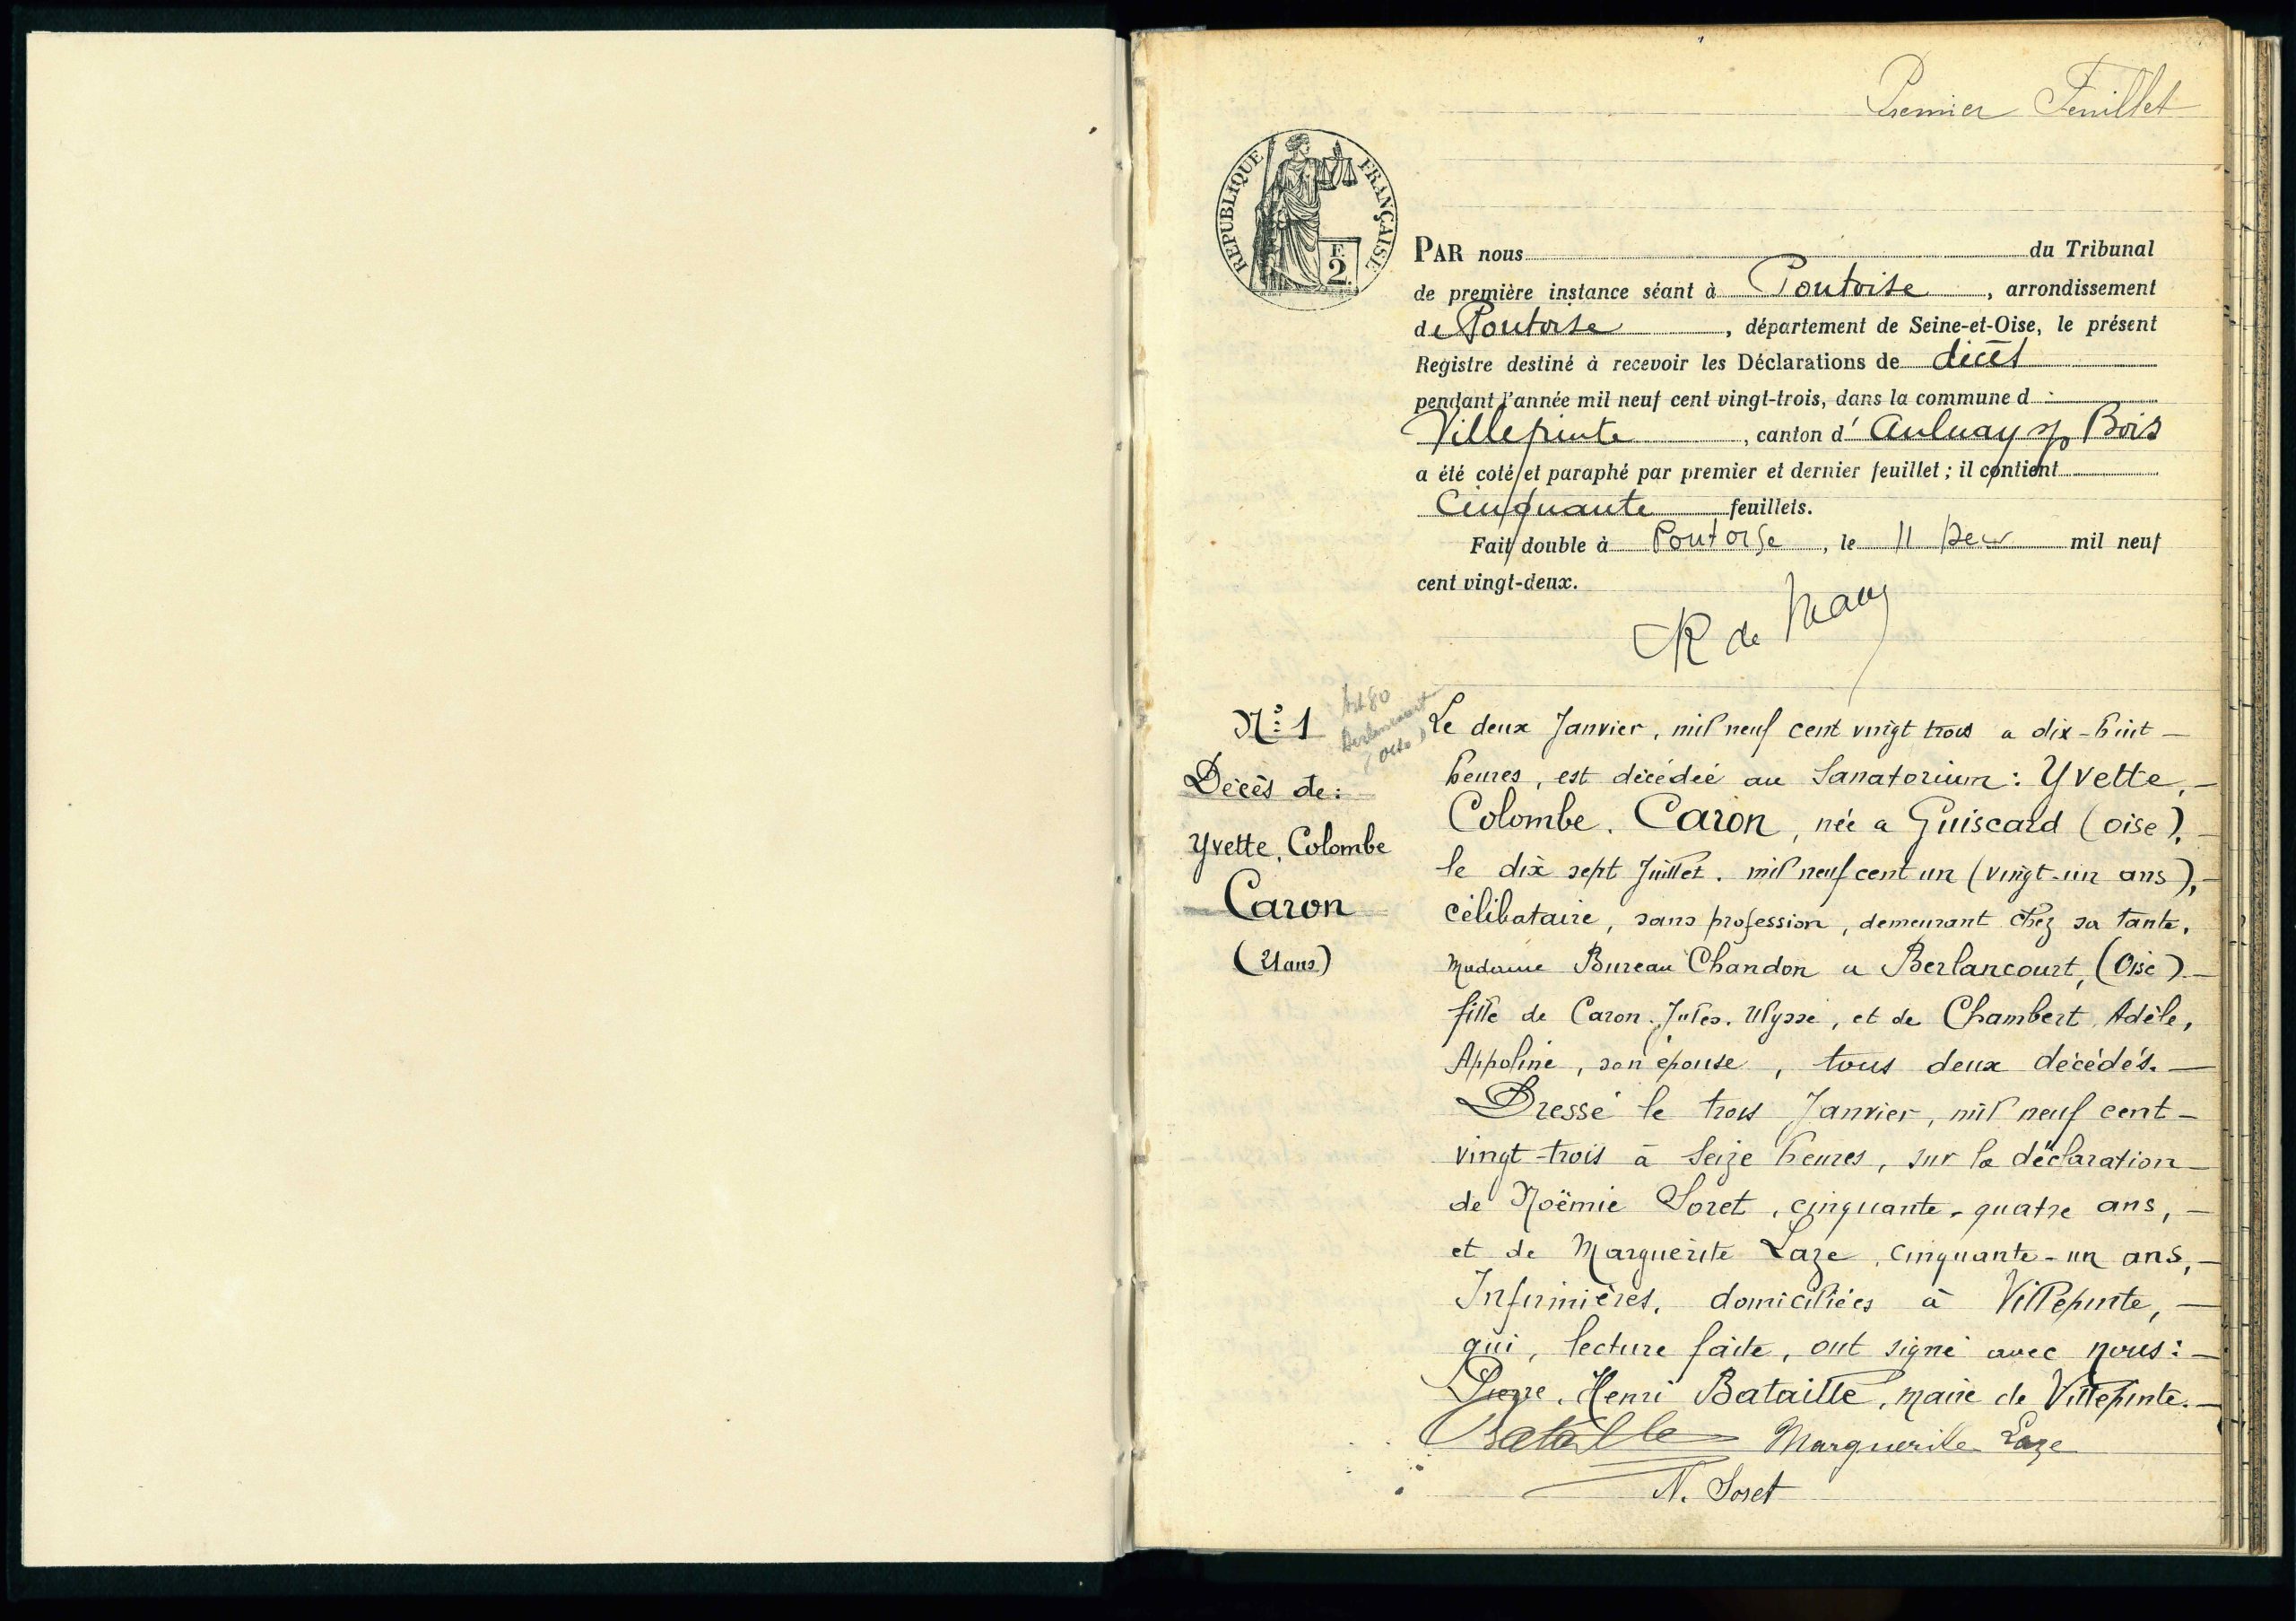 Premier Feuillet
REPUBLIQUE FRANÇAISE
F.
2
PAR nous du Tribunal
de première instance séant à Pontoise, arrondissement
de Pontoise, département de Seine-et-Oise, le présent
Registre destiné à recevoir les Déclarations de décès
pendant l'année mil neuf cent vingt-trois, dans la commune d
Villepinte, canton d' Aulnay s/ Bois
a été coté et paraphé par premier et dernier feuillet ; il contient
Cinquante feuillets.
Fait double à Pontoise, le 11 mil neuf
cent vingt-deux.
R de
Art 80
Berlancourt
(Oise)
No 1
Décès de:
Yvette, Colombe
Caron
(21 ans)
Le deux Janvier, mil neuf cent vingt trois a dix-huit
heures, est décédée au Sanatorium : Yvette,
Colombe. Caron, née a Guiscard (oise),
le dix sept Juillet. mil neuf cent un (vingt-un ans),
célibataire, sans profession, demeurant chez sa tante,
Madame Bureau Chandon a Berlancourt, (Oise)
fille de Caron. Jules. Ulysse, et de Chambert, Adèle,
Appoline, son épouse, tous deux décédés.
Dressé le trois Janvier, mil neuf cent
vingt-trois à seize heures, sur la déclaration
de Noëmie Soret, cinquante-quatre ans,
et de Marguerite Laze, cinquante-un ans,
Infirmières, domiciliées à Villepinte,
qui, lecture faite, ont signé avec nous :
Pierre. Henri Bataille, maire de Villepinte.
Bataille Marguerite Laze
N. Soret